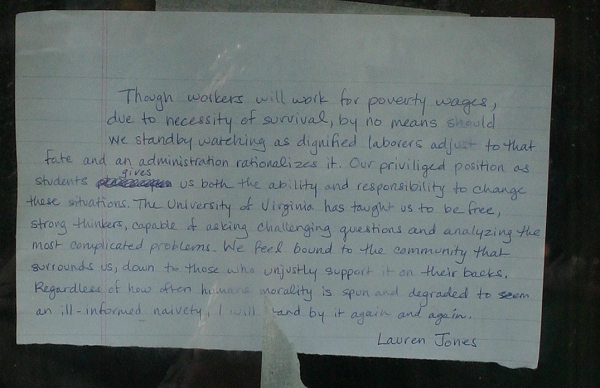 Though workers will work for poverty wages,
due to necessity of survival, by no means should
we standby watching as dignified laborers adjust to that
fate and an administration rationalizes it. Our priviliged position as
students gives us both the ability and responsibility to change
these situations. The University of Virginia has taught us to be free,
strong thinkers, capable of asking challenging questions and analyzing the
most complicated problems. We feel bound to the community that
surrounds us, down to those who unjustly support it on their backs.
Regardless of how often humane morality is spun and degraded to seem
an ill-informed naivety, I will stand by it again and again.
Lauren Jones